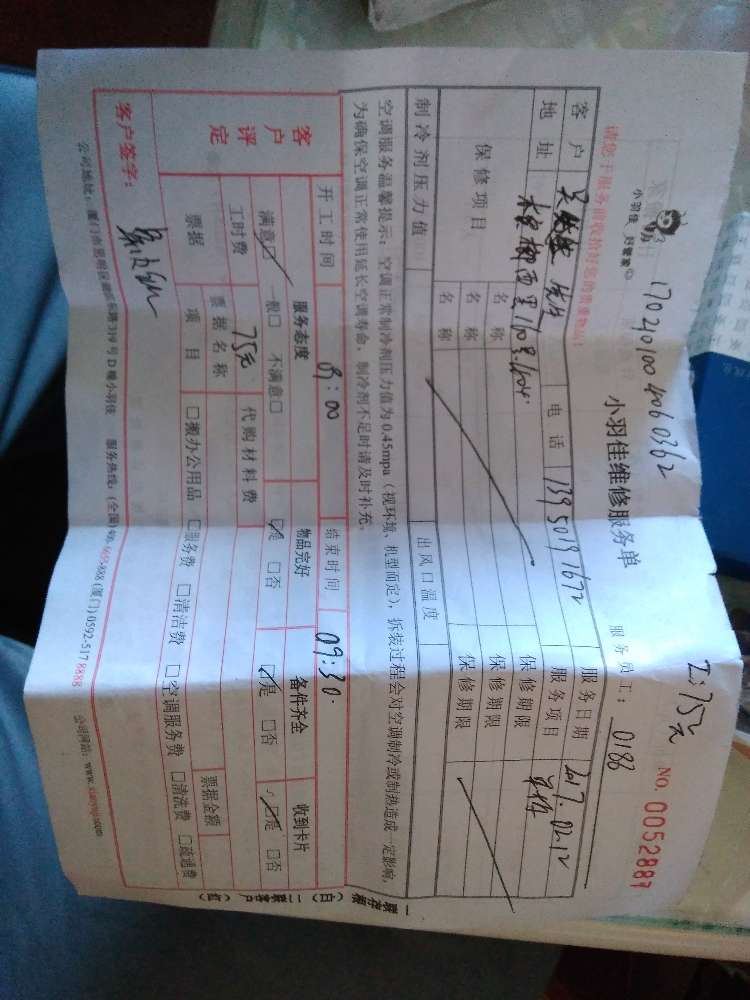 小羽佳 好管家
小羽佳维修服务单
工:75元
服务员工: 0186
NO. 0052887
请您于服务前收拾好您的贵重物品!
客户 先生 电话 服务日期 2017.02.12
地址 服务项目
保修项目 名称 保修期限
名称 保修期限
名称 保修期限
制冷剂压力值 出风口温度
空调服务温馨提示:空调正常制冷剂压力值为0.45mpa(视环境、机型而定),拆装过程会对空调制冷或制热造成一定影响,
为确保空调正常使用延长空调寿命,制冷剂不足时请及时补充。
开工时间 09:00 结束时间 09:30
客户评定 服务态度 物品完好 备件齐全 收到卡片
满意☑ 一般□ 不满意□ ☑是 □否 ☑是 □否 ☑是 □否
工时费 75元 代购材料费
票据 票据名称 票据金额
项目 □搬办公用品 □服务费 □清洁费 □空调服务费 □清洗费 □疏通费
客户签字:
服务热线:(全国) (厦门) 0592-5178888
公司网站: